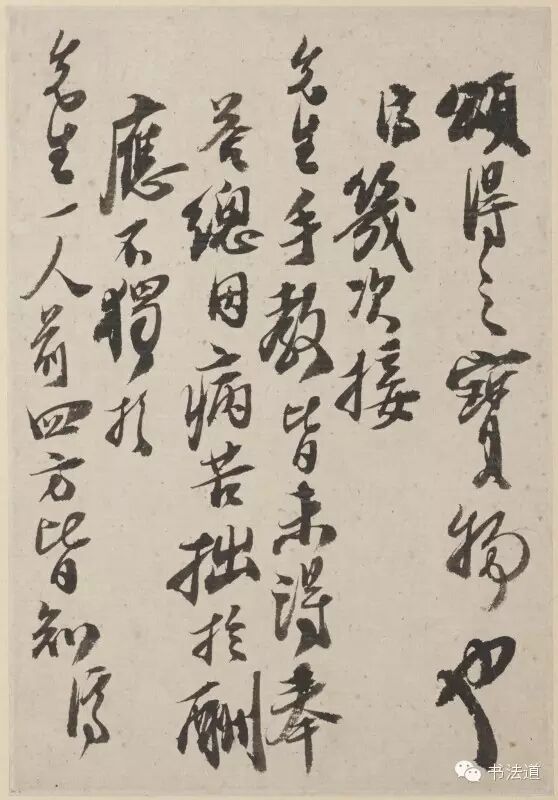 頌得之寶物也
濟幾次接
先生手教皆未得奉
荅總因病苦拙於酬
應不獨於
先生一人前四方皆知濟
书法道